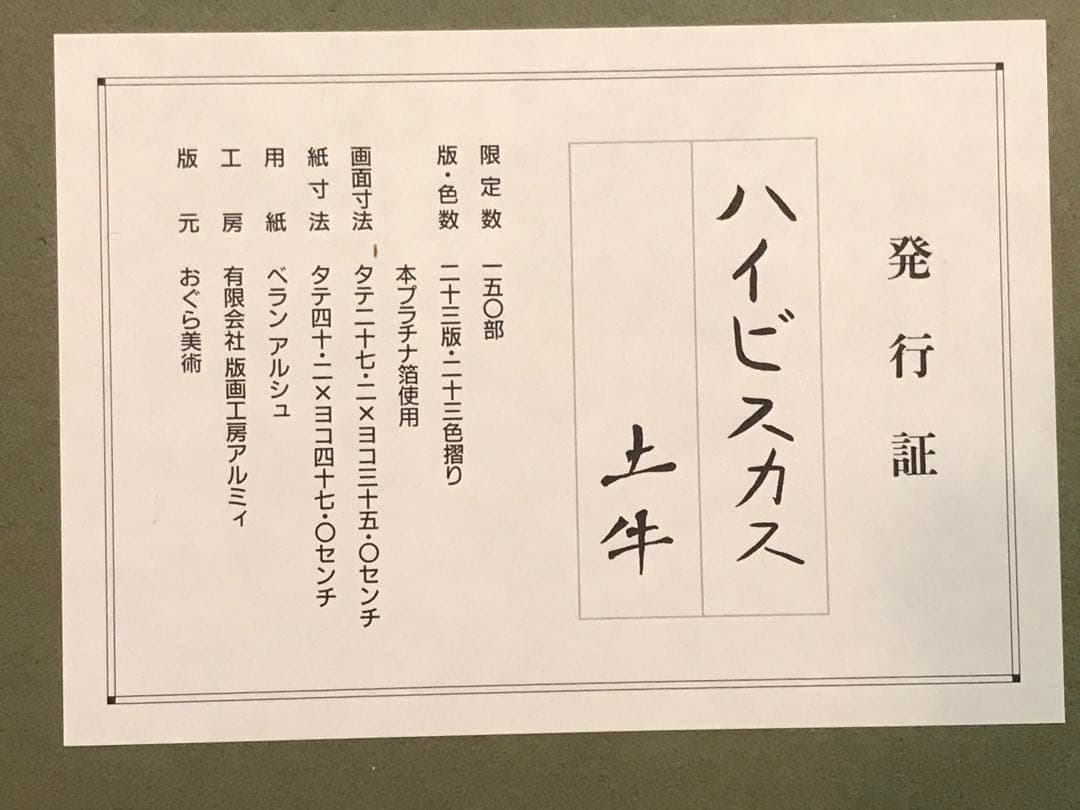 発行証
ハイビスカス
土牛
限定数 一五〇部
版・色数 二十三版・二十三色摺り
本プラチナ箔使用
画面寸法 タテ二十七・二×ヨコ三十五・〇センチ
紙寸法 タテ四十・二×ヨコ四十七・〇センチ
用紙 ベラン アルシュ
工房 有限会社 版画工房アルミィ
版元 おぐら美術